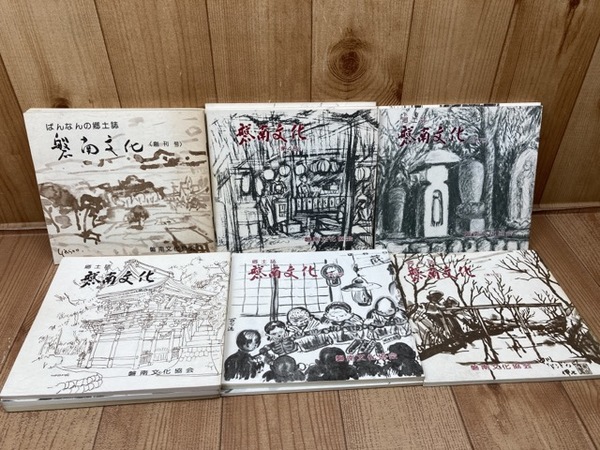 ばんなんの郷土誌
磐南文化
《創刊号》
磐南文化協会
磐南文化
磐南文化協会
磐南文化
郷土誌
磐南文化
磐南文化協会
郷土誌
磐南文化
磐南文化協会
磐南文化
磐南文化協会